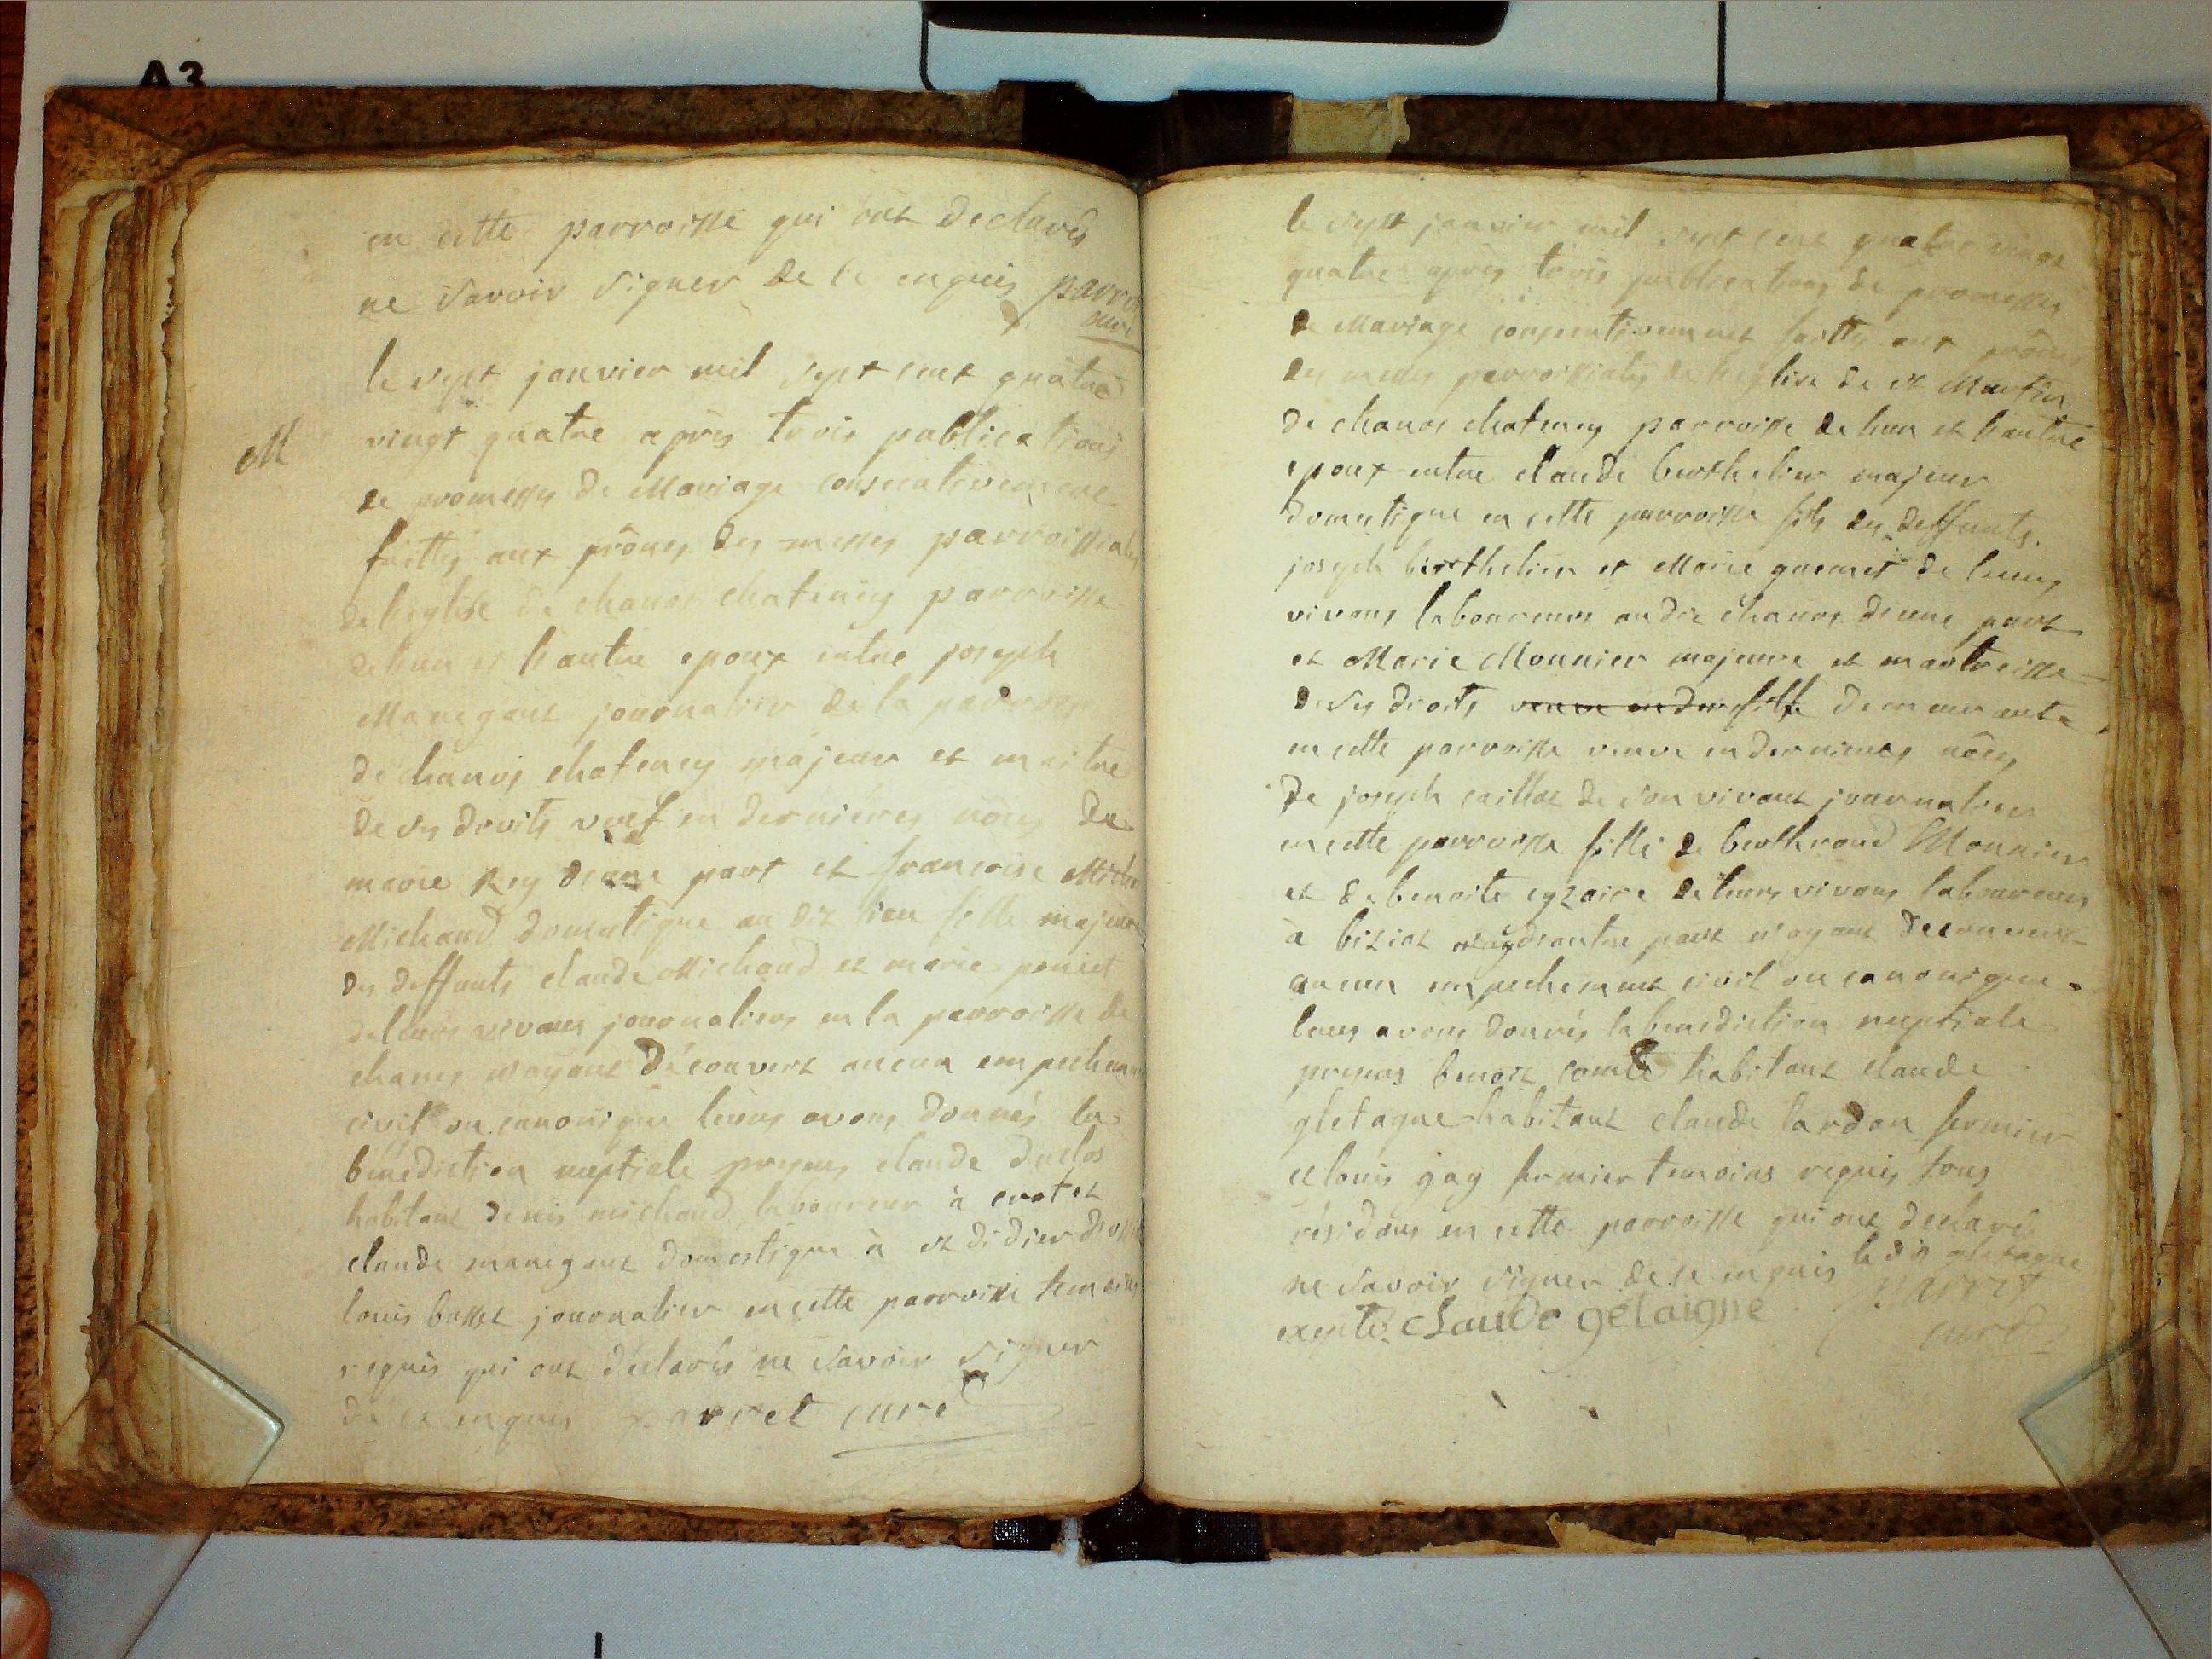 A3
en cette parroisse qui ont declarés
ne savoir signer de ce enquis parret
curé
le sept janvier mil sept cent quatre
M
vingt quatre après trois publications
de promesses de Mariage consecutivement
faittes aux prônes des messes parroissiales
de l'eglise de chanos chatenay parroisse
de l'un et l'autre epoux entre joseph
Manegant journalier de la parroisse
de chanos chatenay majeur et maitre
de ses droits veuf en dernières nôces de
marie rey d'une part et francoise
Michaud domestique au dit lieu fille majeure
des deffunts claude Michaud et marie poncet
de leurs vivans journaliers en la parroisse de
chanos n'ayant découvert aucun empechement
civil ou canonique leurs avons donnés la
bénediction nuptiale presens claude duclos
habitant denis michaud laboureur à crotet
claude manegant domestique à st didier
louis basset journalier en cette parroisse temoins
requis qui ont déclarés ne savoir signer
de ce enquis parret curé
le sept janvier mil sept cent quatre vingt
quatre après trois publications de promesses
de Mariage consecutivement faittes aux prônes
des messes parroissiales de l'eglise de st Martin
de chanos chatenay parroisse de l'un et l'autre
epoux entre claude berthelier majeur
domestique en cette parroisse fils des deffunts
joseph berthelier et Marie guemet de leurs
vivans laboureurs audit chanos d'une part
et Marie Monnier majeure et maitreisse
de ses droits demeurante
en cette parroisse veuve en dernieres nôces
de joseph caillat de son vivant journalier
en cette parroisse fille de berthrand Monnier
et de benoite eyzaire de leurs vivans laboureurs
à biziat d'autre part n'ayant decouvert
aucun empechement civil ou canonique
leurs avons donnés la benediction nuptiale
presens benoit comte habitant claude
gletagne habitant claude lardon fermier
et louis gay fermier temoins requis tous
résidans en cette parroisse qui ont declarés
ne savoir signer de ce enquis le dit gletagne
excepté claude gelaigne parret
curé